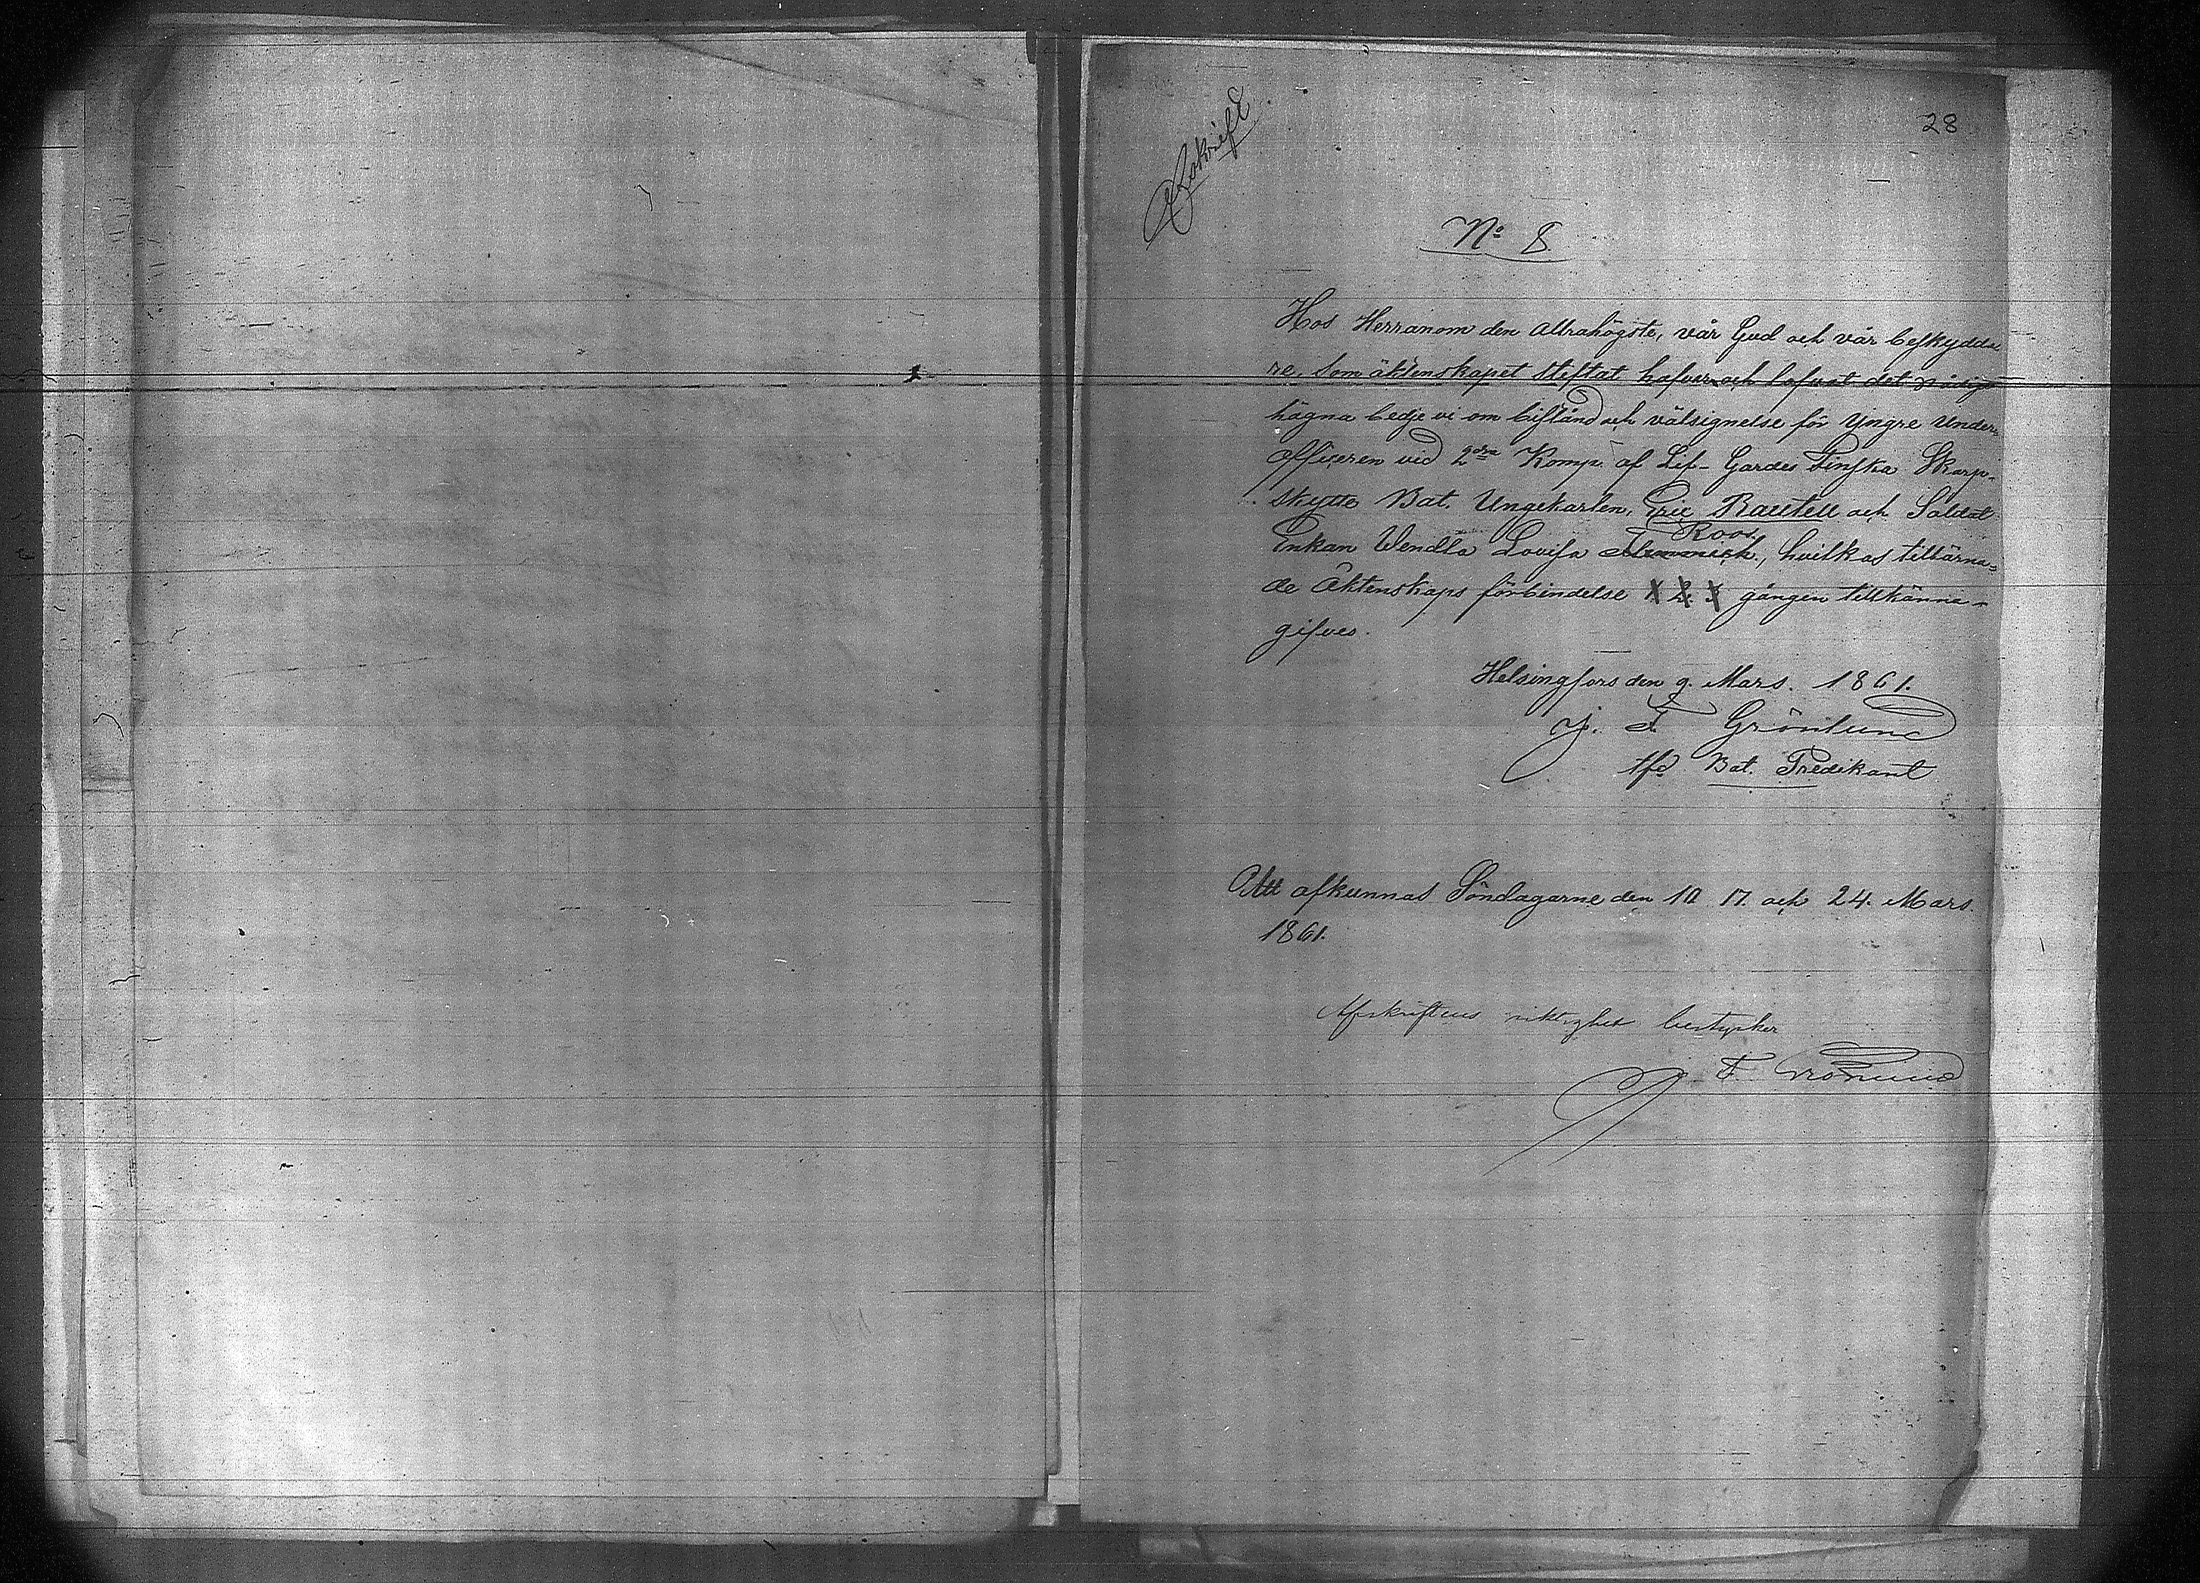 28
Afskrift
No 8.
Hos Herranom den Allrahögste, vår Gud och vår beskydda
re, Som äktenskapet stiftat hafver och lofvat det nådigt
hägna bedje vi om bistånd och välsignelse för Yngre Under-
officeren vid 2dra Komp. af Lif-Gardes Finska Skarp-
skytte Bat. Ungekarlen, Eric Rautell och Soldat
Roos
Enkan Wendla Lovisa, hvilkas tillärna-
de Äktenskaps förbindelse 1 2. 3 gången tillkänna-
gifves.
Helsingfors den 9. Mars. 1861.
J. F Grönlund
tfd Bat. Predikant
Att afkunnas Söndagarne den 10 17. och 24. Mars.
1861.
Afskriftens riktighet bestyrker
J. F. Grönlund